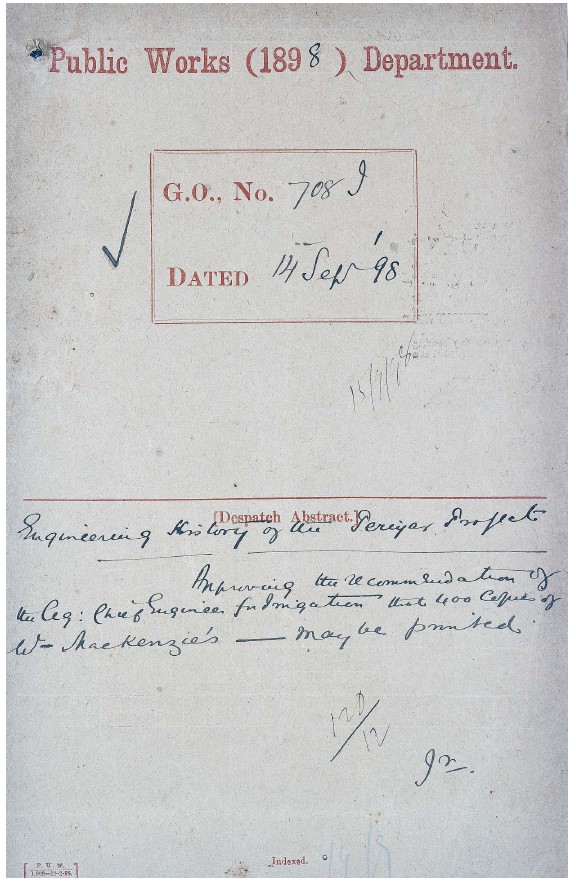 Public Works (1898) Department.
G.O., No. 708 I
DATED 14 Sep 98
15/9/98
[Despatch Abstract.]
Engineering History of the Periyar Project
Approving the recommendation of
the Ag: Chief Engineer for Irrigation that 400 Copies of
Mackenzie's — may be printed.
120/12
Indexed.
P. W. 56.